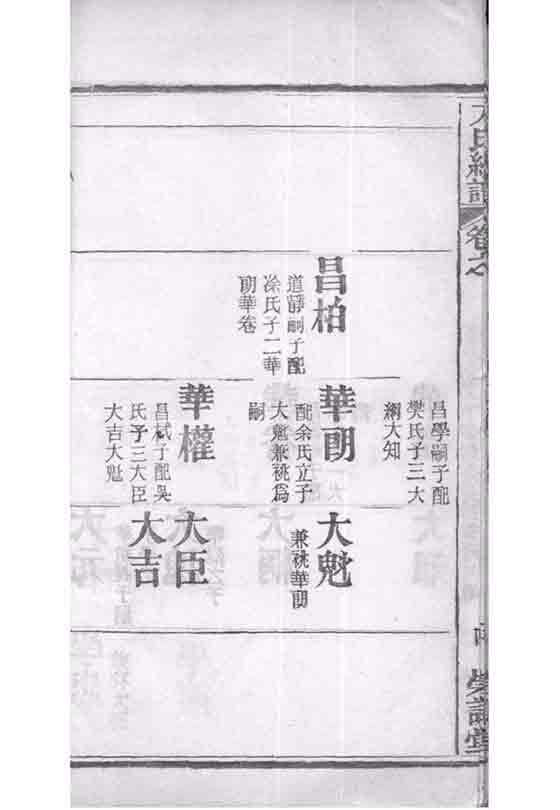 氏總譜
卷之
昌柏
道靜嗣子配
凃氏子二華
朗華卷
昌學嗣子配
樊氏子三大
綱大知
華朗
配余氏立子
大魁兼祧爲
嗣
華權
昌栻子配吳
氏子三大臣
大吉大魁
大魁
兼祧華朗
大臣
大吉